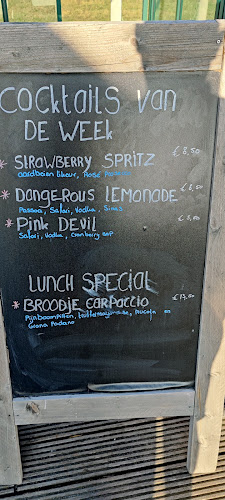 COCKTAILS VAN
DE WEEK
* STRAWBERRY SPRITZ € 8,50
aardbeien likeur, Rosé
* DANGEROUS LEMONADE € 8,50
Passoa, Safari, Vodka, Sinas
* Pink DEVIL € 8,50
Safari, Vodka, Cranberry sap
LUNCH SPECIAL
* BROODJE CARPACCIO
Pijnboompitten, truffelmayonaise, Rucola en
Grana Padano